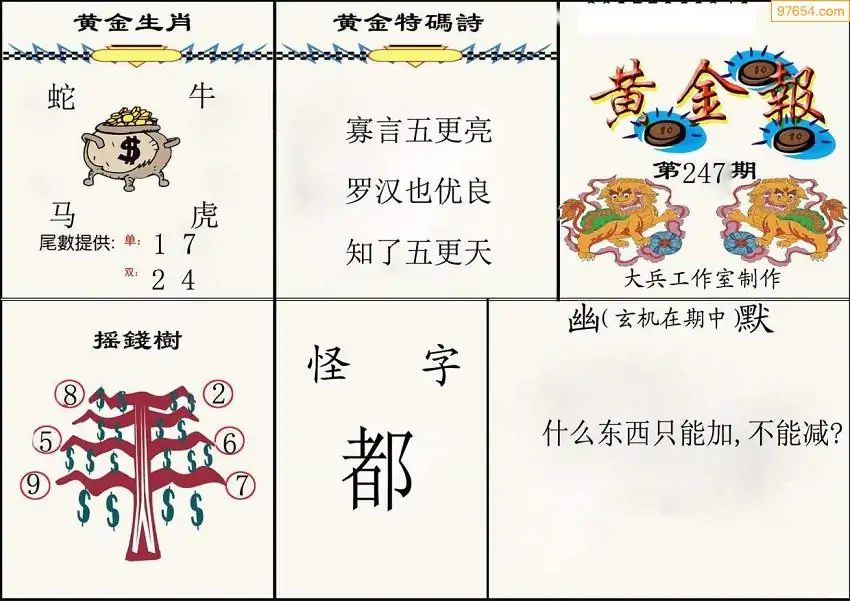 97654.com
黄金生肖
蛇 牛
$
马 虎
尾數提供: 单: 1 7
双: 2 4
黄金特碼詩
寡言五更亮
罗汉也优良
知了五更天
黄金報
10
10
10
第247期
大兵工作室制作
摇錢樹
8 2
5 6
9 7
怪 字
都
幽(玄机在期中)默
什么东西只能加,不能减?